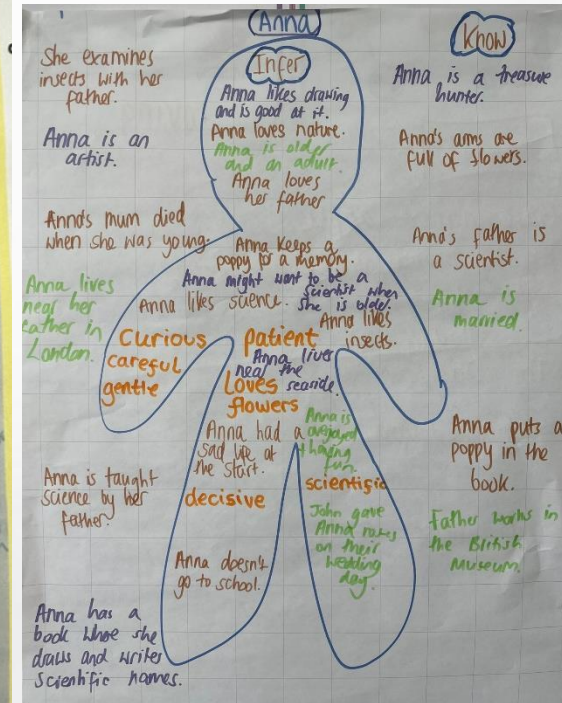 Anna
Infer
Know
She examines
insects with her
father.
Anna is an
artist.
Anna's mum died
when she was young.
Anna lives
near her
father in
London.
Anna is taught
science by her
father.
Anna has a
book where she
draws and writes
scientific names.
Anna likes drawing
and is good at it.
Anna loves nature.
Anna is older
and an adult
Anna loves
her father
Anna keeps a
poppy for a memory.
Anna might want to be a
scientist when
she is older.
Anna likes science.
Anna likes
insects.
Curious
careful
gentle
patient
Anna lives
near the
seaside.
Loves
flowers
Anna had a
sad life at
the start.
Anna is
overjoyed
having
fun.
decisive
scientific
Anna doesn't
go to school.
John gave
Anna roses
on their
wedding
day.
Anna is a treasure
hunter.
Anna's arms are
full of flowers.
Anna's father is
a scientist.
Anna is
married.
Anna puts a
poppy in the
book.
Father works in
the British
Museum.